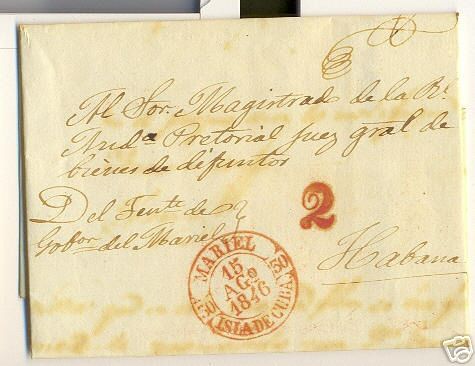 Al Sor. Magistrado de la Rl.
Auda Pretorial juez gral de
bienes de difuntos
Del Tente de
Gobor. del Mariel
2
Habana
MARIEL
15
AGo
1846
ISLA DE CUBA